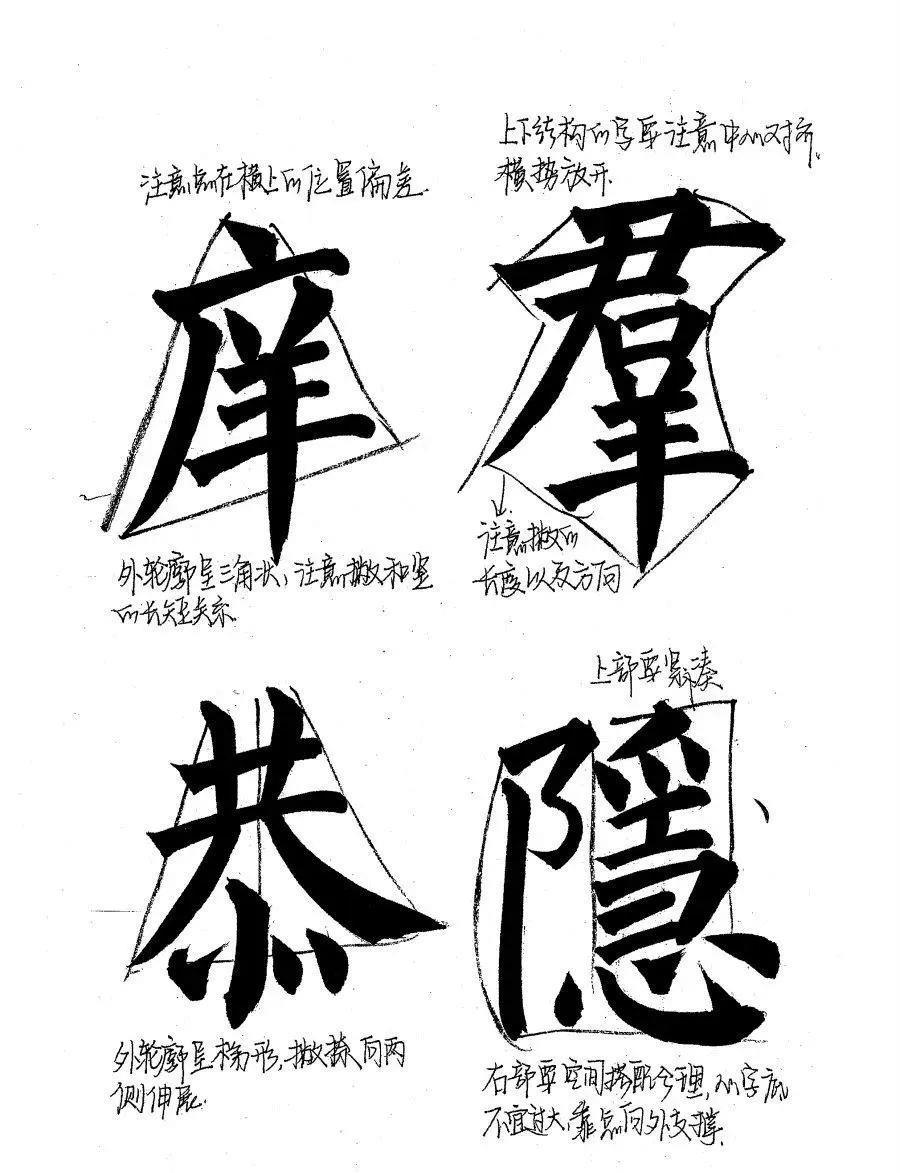 注意点在横上的位置偏差.
庠
外轮廓呈三角状,注意撇和竖
的长短关系.
上下结构的字要注意中心对齐.
横势放开.
羣
注意撇的
长度以及方向
恭
外轮廓呈梯形,撇捺向两
侧伸展.
上部要紧凑
隱
右部要空间搭配合理,心字底
不宜过大,靠点向外支撑.